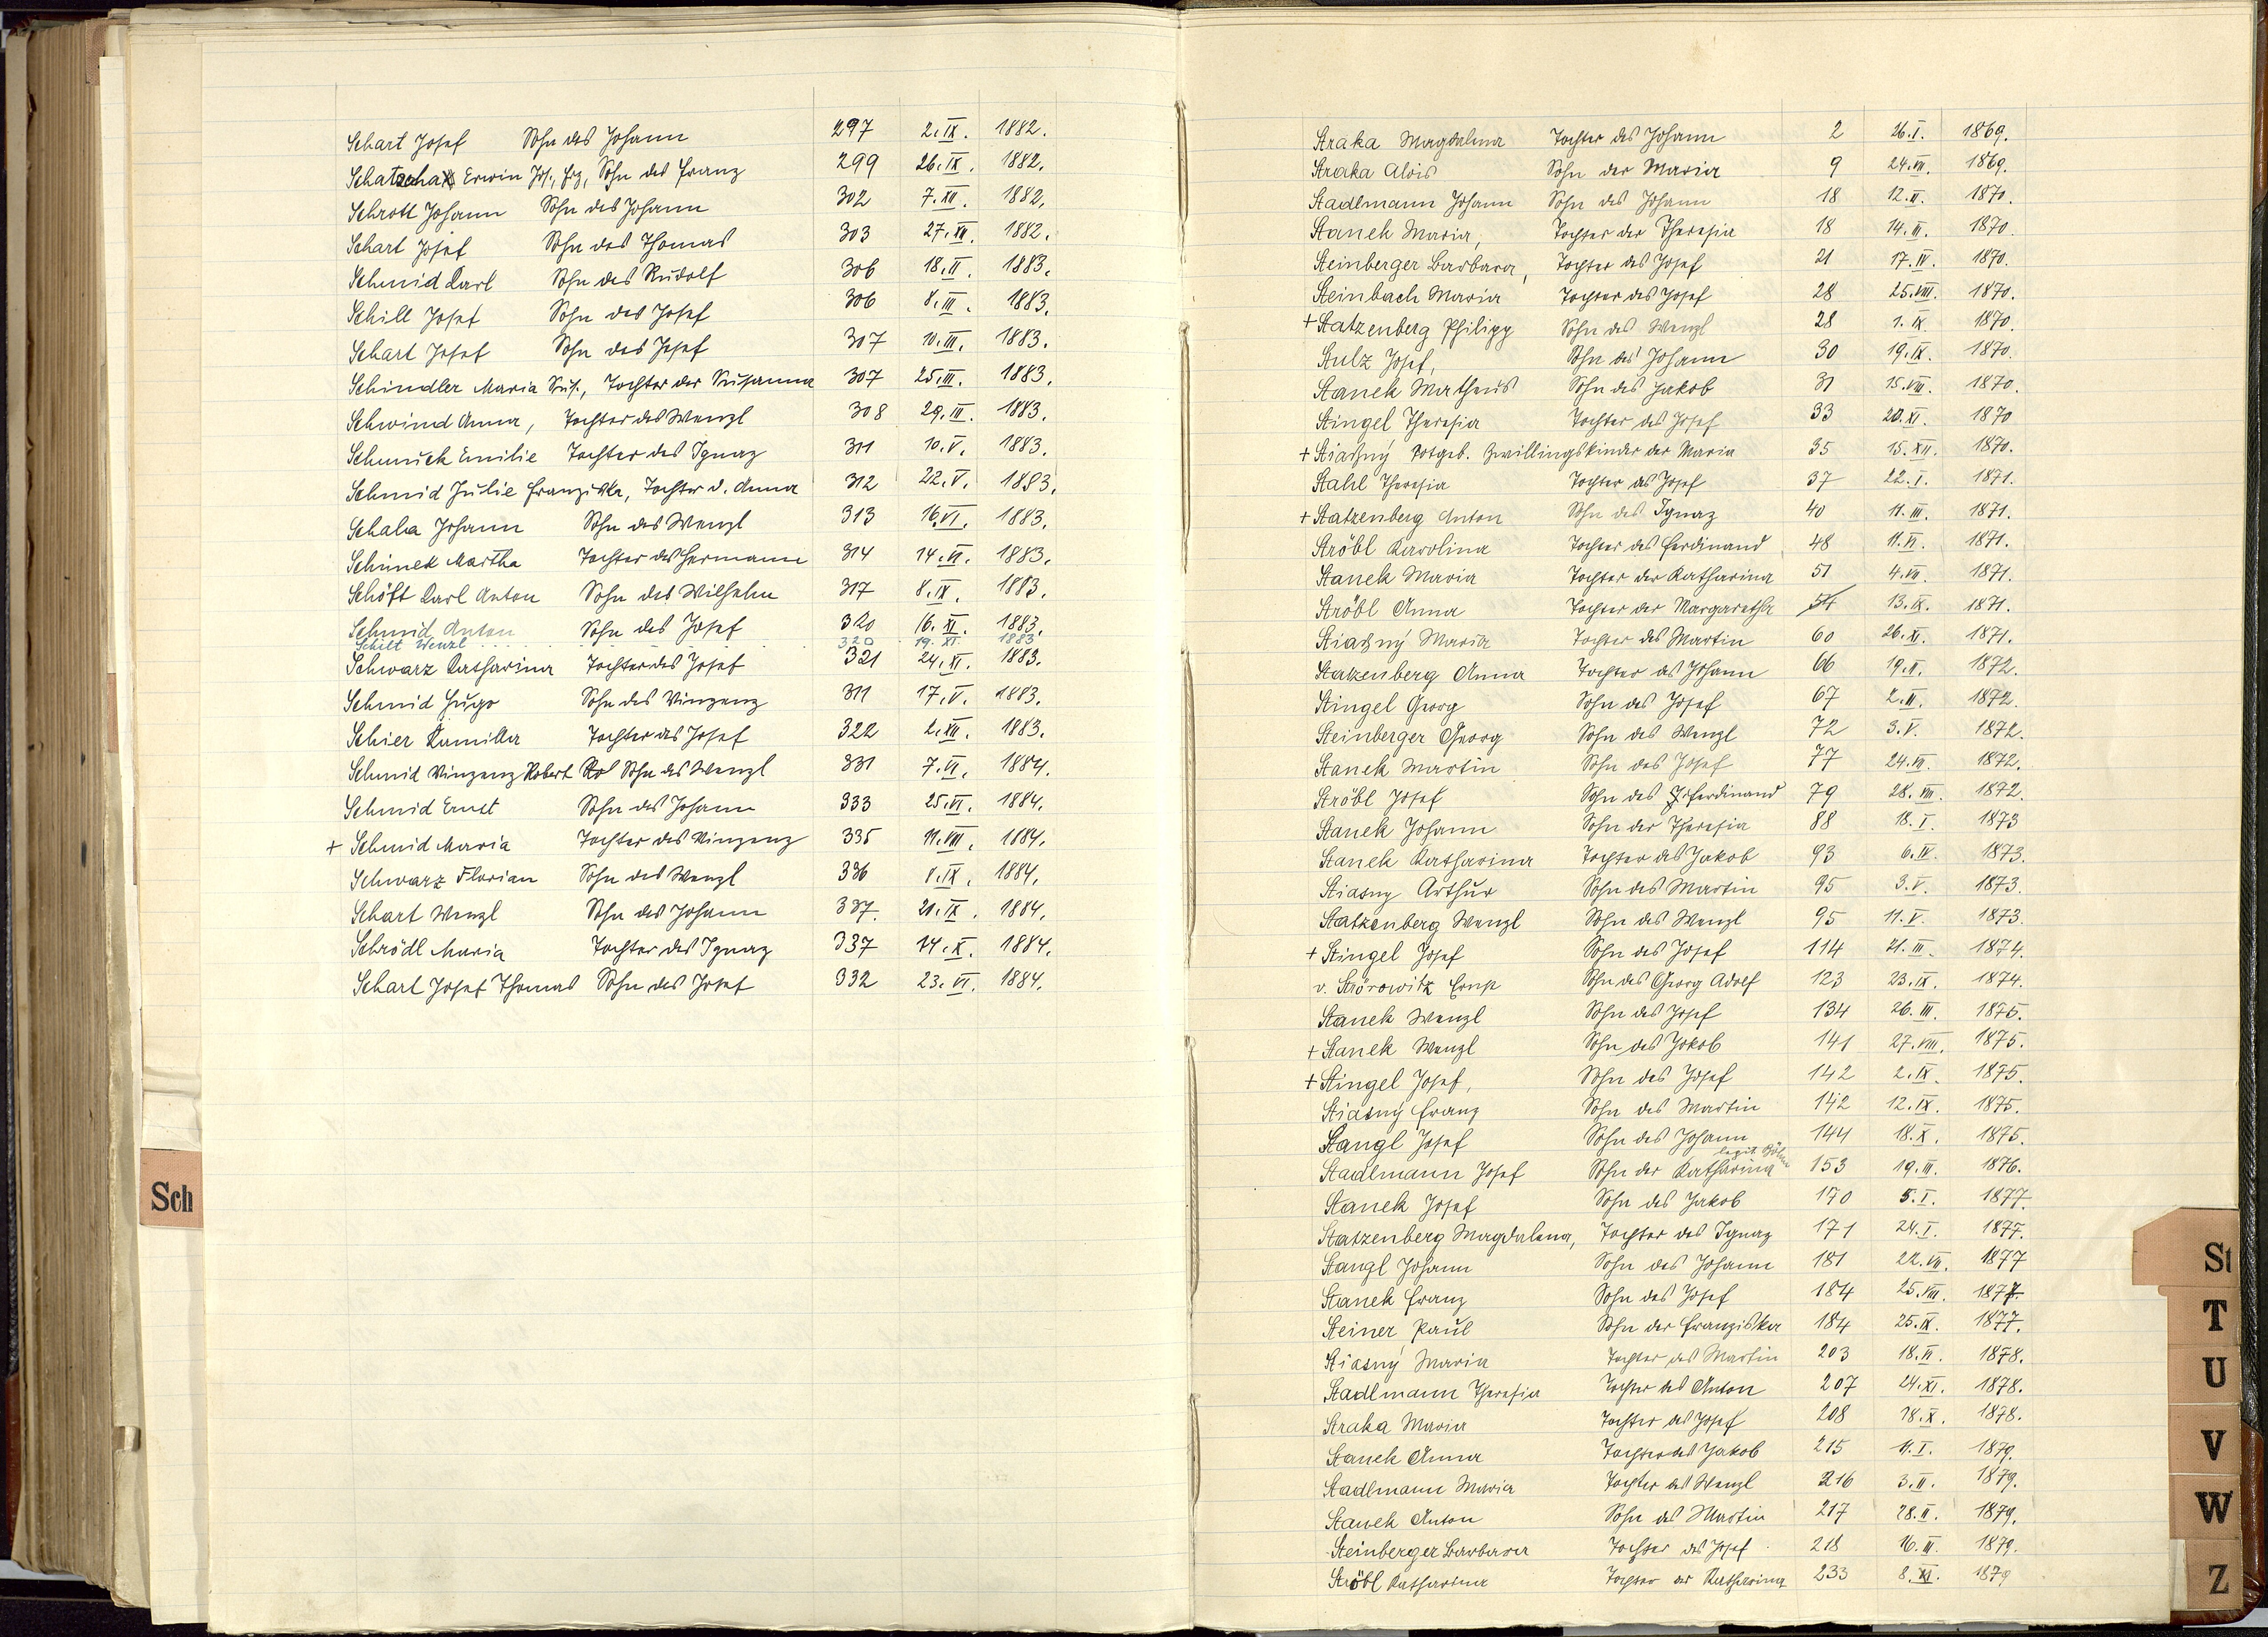 Schart Josef Sohn des Johann 297 2.IX. 1882.
Schatscha Erwin Jos., Frz, Sohn des Franz 299 26.IX. 1882.
Schrott Johann Sohn des Johann 302 7.XII. 1882.
Schart Josef Sohn des Thomas 303 27.XII. 1882.
Schmid Karl Sohn des Rudolf 306 18.II. 1883.
Schill Josef Sohn des Josef 306 8.III. 1883.
Schart Josef Sohn des Josef 307 10.III. 1883.
Schindler Maria Sus., Tochter der Susanna 307 25.III. 1883.
Schwind Anna, Tochter des Wenzl 308 29.III. 1883.
Schmuck Emilie Tochter des Ignaz 311 10.V. 1883.
Schmid Julie Franziska, Tochter d. Anna 312 22.V. 1883.
Schala Johann Sohn des Wenzl 313 16.VI. 1883.
Schimek Martha Tochter des Hermann 314 14.VI. 1883.
Schöft Karl Anton Sohn des Wilhelm 317 8.IX. 1883.
Schmid Anton Sohn des Josef 320 16.XI. 1883.
Schilt Wenzl 320 19.XI 1883
Schwarz Katharina Tochter des Josef 321 24.XI. 1883.
Schmid Hugo Sohn des Vinzenz 311 17.V. 1883.
Schier Kamilla Tochter des Josef 322 2.XII. 1883.
Schmid Vinzenz Robert Sohn des Wenzl 331 7.VI. 1884.
Schmid Ernst Sohn des Johann 333 25.VI. 1884.
+ Schmid Maria Tochter des Vinzenz 335 11.VIII. 1884.
Schwarz Florian Sohn des Wenzl 336 8.IX. 1884.
Schart Wenzl Sohn des Johann 337. 21.IX. 1884.
Schrödl Maria Tochter des Ignaz 337 14.X. 1884.
Schart Josef Thomas Sohn des Josef 332 23.VI. 1884.
Sch
Straka Magdalena Tochter des Johann 2 26.I. 1869.
Straka Alois Sohn der Maria 9 24.VII. 1869.
Stadlmann Johann Sohn des Johann 18 12.II. 1870.
Stanek Maria, Tochter der Theresia 18 14.II. 1870.
Steinberger Barbara, Tochter des Josef 21 17.IV. 1870.
Steinbach Maria Tochter des Josef 28 25.VIII. 1870.
+ Statzenberg Philipp Sohn des Wenzl 28 1.IX. 1870.
Stulz Josef, Sohn des Johann 30 19.IX. 1870.
Stanek Matheus Sohn des Jakob 31 15.VIII. 1870.
Stingel Theresia Tochter des Josef 33 20.XI. 1870
+ Stiassný totgeb. Zwillingskinder der Maria 35 15.XII. 1870.
Stahl Theresia Tochter des Josef 37 22.I. 1871.
+ Statzenberg Anton Sohn des Ignaz 40 11.III. 1871.
Ströbl Karolina Tochter des Ferdinand 48 11.VI. 1871.
Stanek Maria Tochter der Katharina 51 4.VII. 1871.
Ströbl Anna Tochter der Margaretha 54 13.IX. 1871.
Stiassný Maria Tochter des Martin 60 26.XI. 1871.
Statzenberg Anna Tochter des Johann 66 19.II. 1872.
Stingel Georg Sohn des Josef 67 2.III. 1872.
Steinberger Georg Sohn des Wenzl 72 3.V. 1872.
Stanek Martin Sohn des Josef 77 24.VII. 1872.
Ströbl Josef Sohn des Ferdinand 79 28.VIII. 1872.
Stanek Johann Sohn der Theresia 88 18.I. 1873
Stanek Katharina Tochter des Jakob 93 6.IV. 1873.
Stiasny Arthur Sohn des Martin 95 3.V. 1873.
Statzenberg Wenzl Sohn des Wenzl 95 11.V. 1873.
+ Stingel Josef Sohn des Josef 114 21.III. 1874.
v. Strörowitz Ernst Sohn des Georg Adolf 123 23.IX. 1874.
Stanek Wenzl Sohn des Josef 134 26.III. 1875.
+ Stanek Wenzl Sohn des Jakob 141 27.VIII. 1875.
+ Stingel Josef, Sohn des Josef 142 2.IX. 1875.
Stiasný Franz Sohn des Martin 142 12.IX. 1875.
Stangl Josef Sohn des Johann 144 18.X. 1875.
legit.
Stadlmann Josef Sohn der Katharina 153 19.III. 1876.
Stanek Josef Sohn des Jakob 170 5.I. 1877.
Statzenberg Magdalena, Tochter des Ignaz 171 24.I. 1877.
Stangl Johann Sohn des Johann 181 22.VII. 1877
Stanek Franz Sohn des Josef 184 25.VIII. 1877.
Steiner Paul Sohn der Franziska 184 25.IX. 1877.
Stiasný Maria Tochter des Martin 203 18.VI. 1878.
Stadlmann Theresia Tochter des Anton 207 24.XI. 1878.
Straka Maria Tochter des Josef 208 18.X. 1878.
Stanek Anna Tochter des Jakob 215 11.I. 1879.
Stadlmann Maria Tochter des Wenzl 216 3.II. 1879.
Stanek Anton Sohn des Martin 217 28.II. 1879.
Steinberger Barbara Tochter des Josef 218 16.III. 1879.
Ströbl Katharina Tochter der Katharina 233 8.XI. 1879
St
T
U
V
W
Z